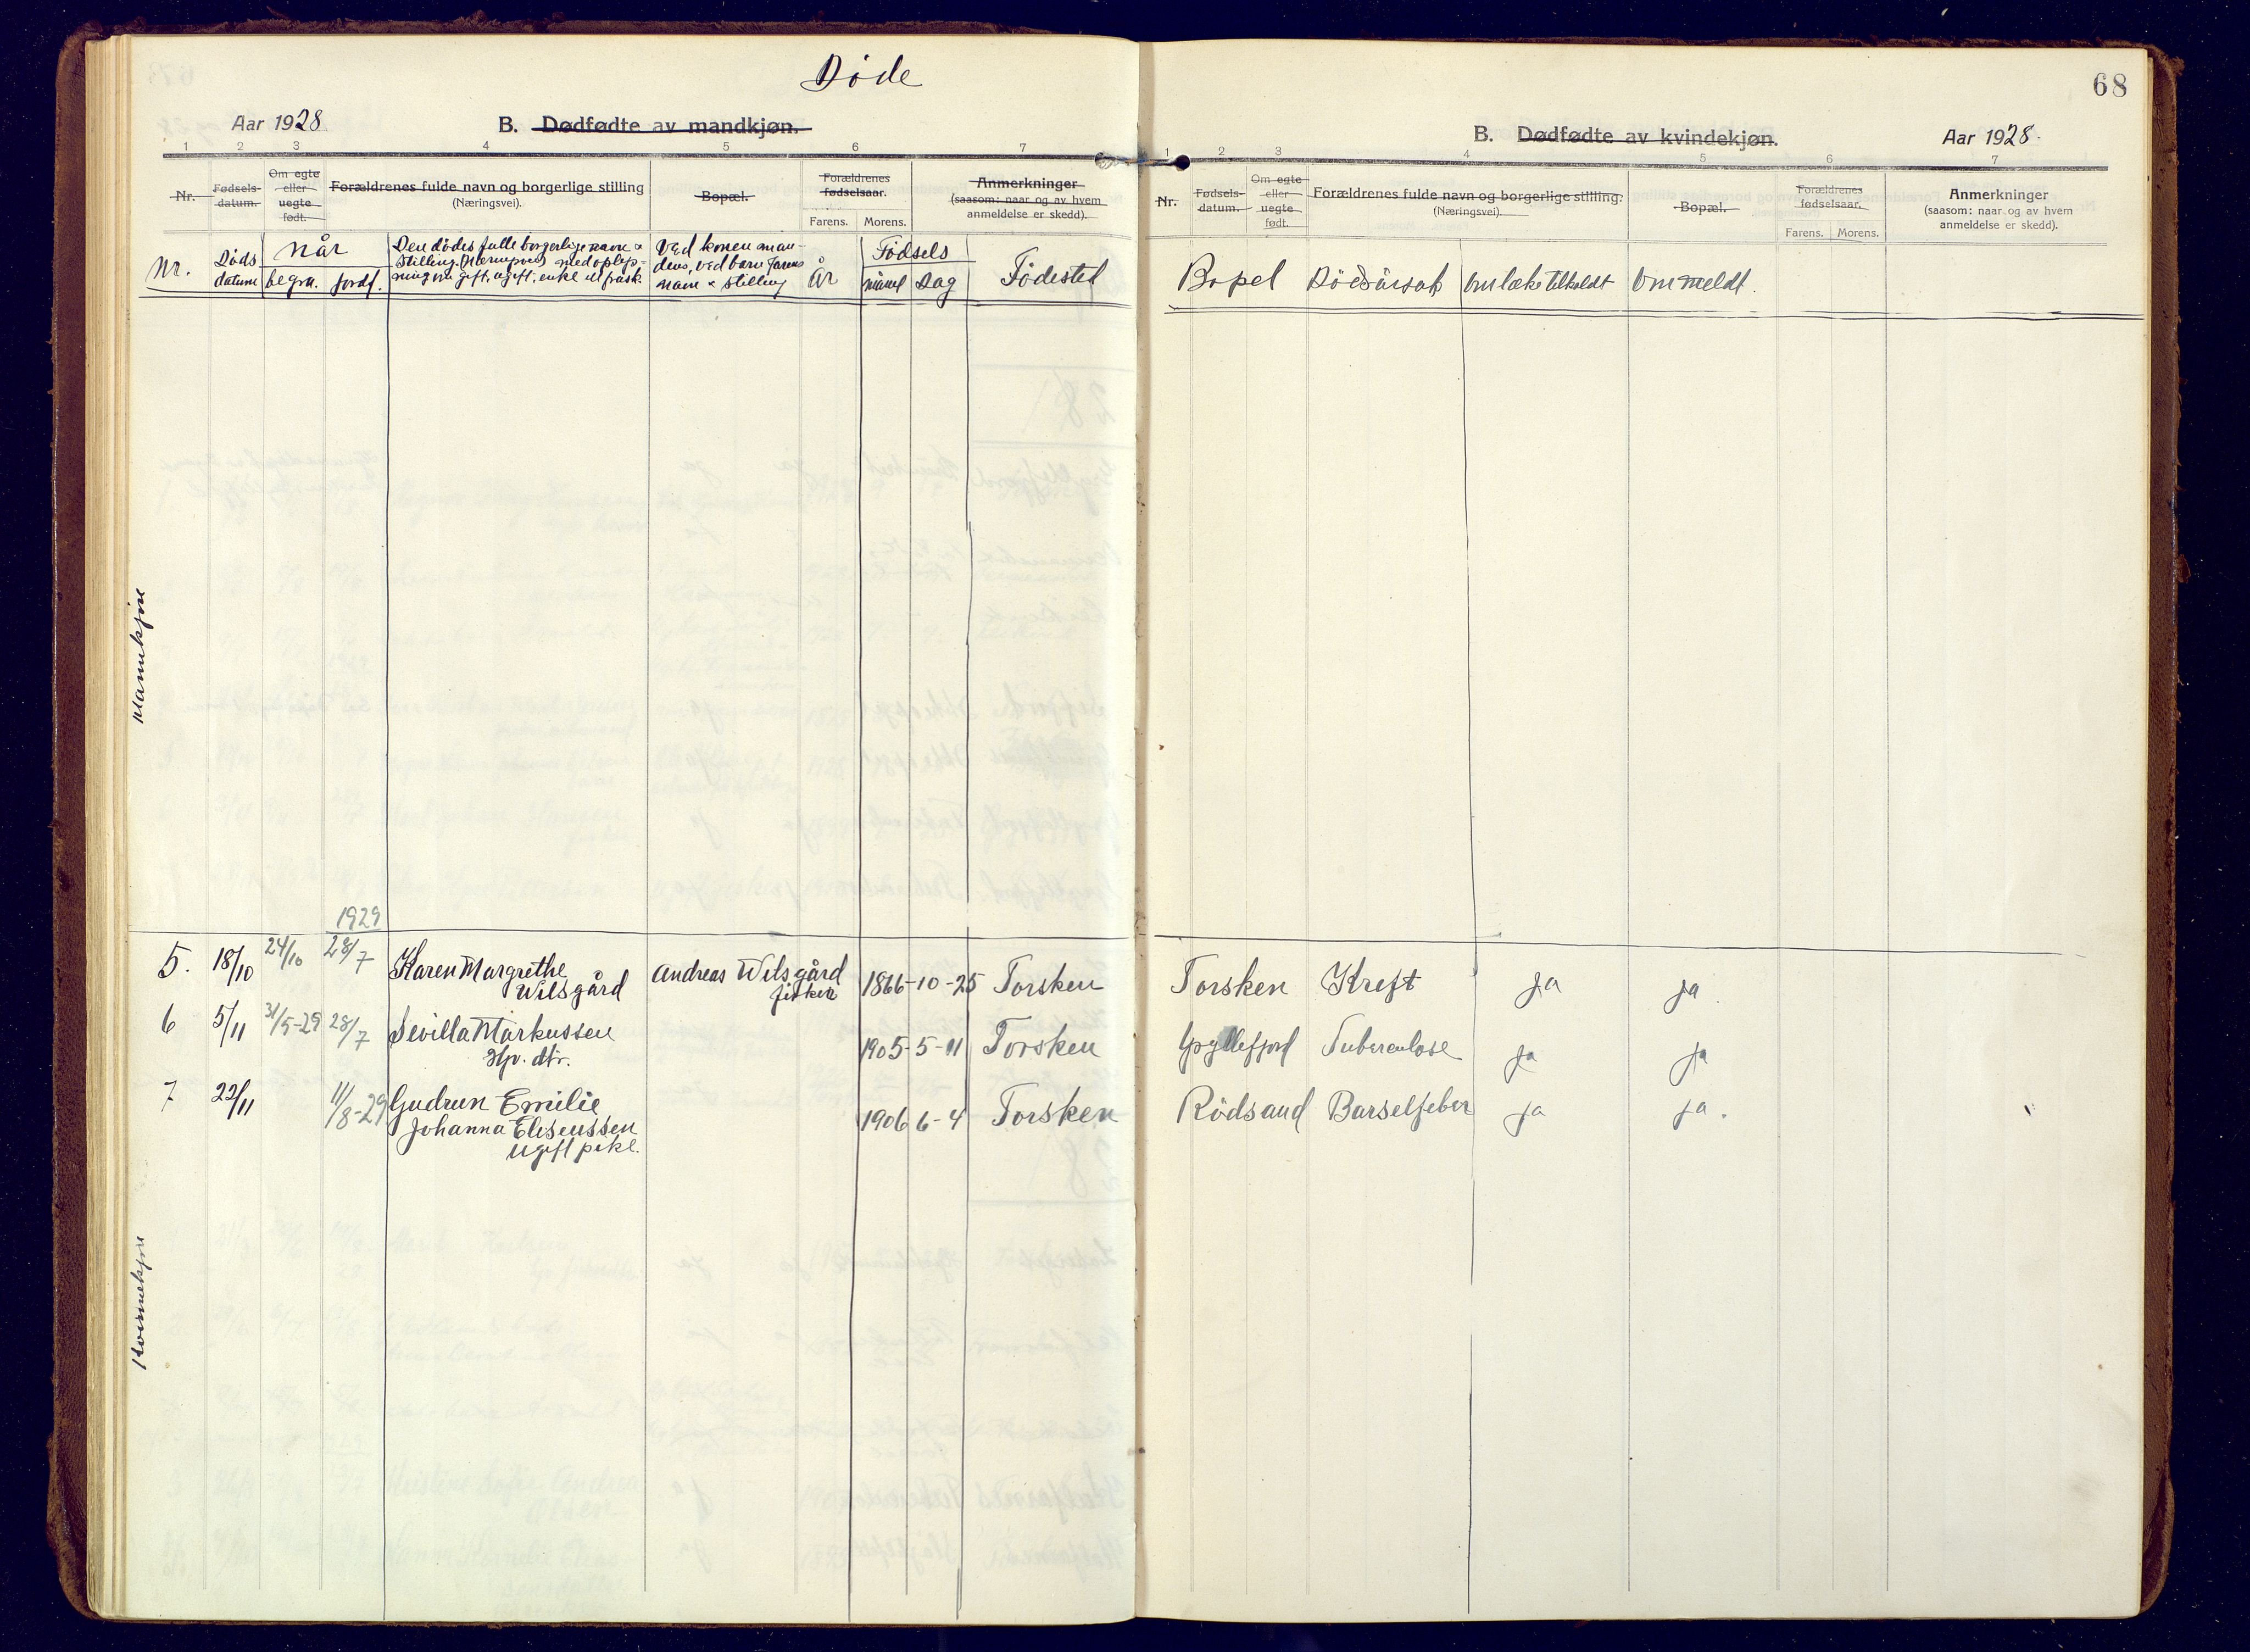 Døde
68
Aar 1928
B. Dødfødte av mandkjøn.
1 2 3 4 5 6 7
Nr.
Fødsels-
datum.
Om egte
eller
uegte
født.
Forældrenes fulde navn og borgerlige stilling
(Næringsvei).
Bopæl.
Forældrenes
fødselsaar.
Farens. Morens.
Anmerkninger
(saasom: naar og av hvem
anmeldelse er skedd).
Nr.
Døds
datum
Når
begra. jordf.
Den dødes fulle borgerlige navn &
stilling. Næringsvei med oplys-
ning om gift, ugift, enke el frask.
Ved konen man-
dens, ved barn farens
navn & stilling
År
Fødsels
måned Dag
Fødested
B. Dødfødte av kvindekjøn.
Aar 1928.
1 2 3 4 5 6 7
Nr.
Fødsels-
datum.
Om egte
eller
uegte
født.
Forældrenes fulde navn og borgerlige stilling.
(Næringsvei).
Bopæl.
Forældrenes
fødselsaar.
Farens. Morens.
Anmerkninger
(saasom: naar og av hvem
anmeldelse er skedd).
Bopel Dødsårsak Om læke tilkaldt Om meldt.
Mannkjøn
1929
5. 18/10 24/10 28/7 Karen Margrethe Andreas Wilsgård 1866-10-25 Torsken Torsken Kreft ja ja.
Wilsgård fisker
6 5/11 31/5-29 28/7 Sevilla Markussen 1905-5-11 Torsken Gryllefjord Tuberculose ja ja
Hp. dtr.
7 22/11 11/8-29 Gudrun Emilie 1906 6-4 Torsken Rödsand Barselfeber ja ja.
Johanna Eliseussen
ugift pike.
Kvinnekjøn